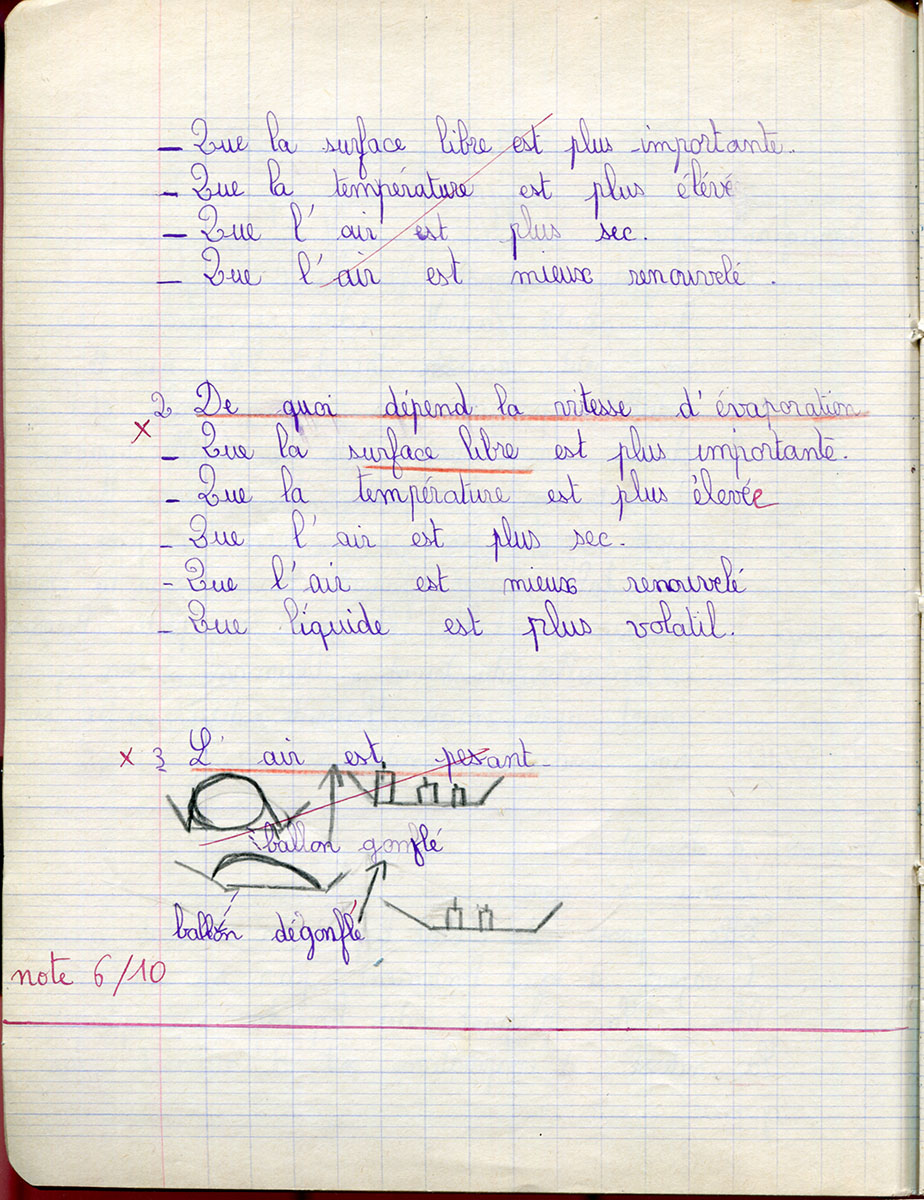 – Que la surface libre est plus importante.
– Que la température est plus élévé
– Que l'air est plus sec.
– Que l'air est mieux renouvelé.
2 De quoi dépend la vitesse d'évaporation
x
– Que la surface libre est plus importante.
– Que la température est plus élevée
– Que l'air est plus sec.
– Que l'air est mieux renouvelé
– Que líquide est plus volatil.
x 3 L'air est pesant
ballon gonflé
ballon dégonflé
note 6/10